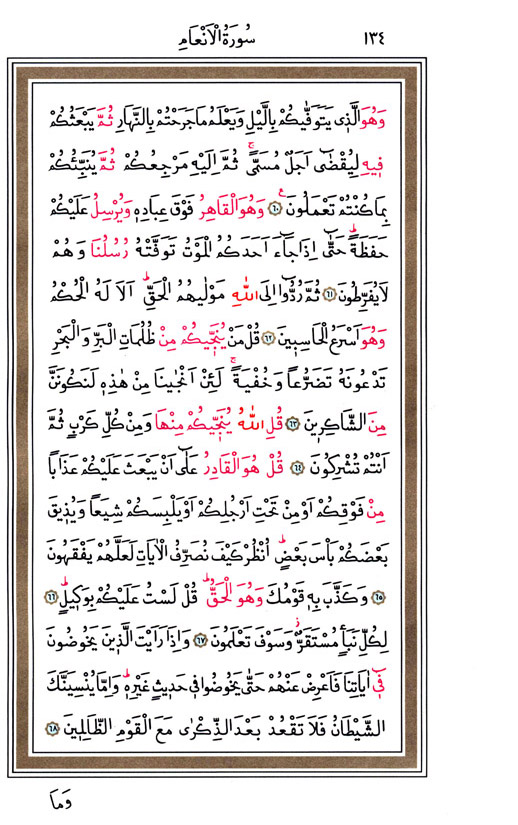 سُورَةُ الْاَنْعَامِ ١٣٤
وَهُوَ الَّذ۪ي يَتَوَفّٰيكُمْ بِالَّيْلِ وَيَعْلَمُ مَا جَرَحْتُمْ بِالنَّهَارِ ثُمَّ يَبْعَثُكُمْ
ف۪يهِ لِيُقْضٰٓى اَجَلٌ مُسَمًّىۚ ثُمَّ اِلَيْهِ مَرْجِعُكُمْ ثُمَّ يُنَبِّئُكُمْ
بِمَا كُنْتُمْ تَعْمَلُونَ۟ ﴿٦٠﴾ وَهُوَ الْقَاهِرُ فَوْقَ عِبَادِه۪ وَيُرْسِلُ عَلَيْكُمْ
حَفَظَةًۜ حَتّٰٓى اِذَا جَٓاءَ اَحَدَكُمُ الْمَوْتُ تَوَفَّتْهُ رُسُلُنَا وَهُمْ
لَا يُفَرِّطُونَ ﴿٦١﴾ ثُمَّ رُدُّٓوا اِلَى اللّٰهِ مَوْلٰيهُمُ الْحَقِّۜ اَلَا لَهُ الْحُكْمُ
وَهُوَ اَسْرَعُ الْحَاسِب۪ينَ ﴿٦٢﴾ قُلْ مَنْ يُنَجّ۪يكُمْ مِنْ ظُلُمَاتِ الْبَرِّ وَالْبَحْرِ
تَدْعُونَهُ تَضَرُّعاً وَخُفْيَةًۚ لَئِنْ اَنْجٰينَا مِنْ هٰذِه۪ لَنَكُونَنَّ
مِنَ الشَّاكِر۪ينَ ﴿٦٣﴾ قُلِ اللّٰهُ يُنَجّ۪يكُمْ مِنْهَا وَمِنْ كُلِّ كَرْبٍ ثُمَّ
اَنْتُمْ تُشْرِكُونَ ﴿٦٤﴾ قُلْ هُوَ الْقَادِرُ عَلٰٓى اَنْ يَبْعَثَ عَلَيْكُمْ عَذَاباً
مِنْ فَوْقِكُمْ اَوْ مِنْ تَحْتِ اَرْجُلِكُمْ اَوْ يَلْبِسَكُمْ شِيَعاً وَيُذ۪يقَ
بَعْضَكُمْ بَأْسَ بَعْضٍۜ اُنْظُرْ كَيْفَ نُصَرِّفُ الْاٰيَاتِ لَعَلَّهُمْ يَفْقَهُونَ
﴿٦٥﴾ وَكَذَّبَ بِه۪ قَوْمُكَ وَهُوَ الْحَقُّۜ قُلْ لَسْتُ عَلَيْكُمْ بِوَك۪يلٍۜ ﴿٦٦﴾
لِكُلِّ نَبَأٍ مُسْتَقَرٌّۘ وَسَوْفَ تَعْلَمُونَ ﴿٦٧﴾ وَاِذَا رَاَيْتَ الَّذ۪ينَ يَخُوضُونَ
ف۪ٓي اٰيَاتِنَا فَاَعْرِضْ عَنْهُمْ حَتّٰى يَخُوضُوا ف۪ي حَد۪يثٍ غَيْرِه۪ۜ وَاِمَّا يُنْسِيَنَّكَ
الشَّيْطَانُ فَلَا تَقْعُدْ بَعْدَ الذِّكْرٰى مَعَ الْقَوْمِ الظَّالِم۪ينَ ﴿٦٨﴾
وَمَا